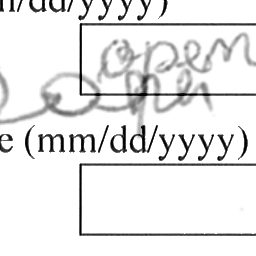 m/dd/yyyy)
open
e (mm/dd/yyyy)